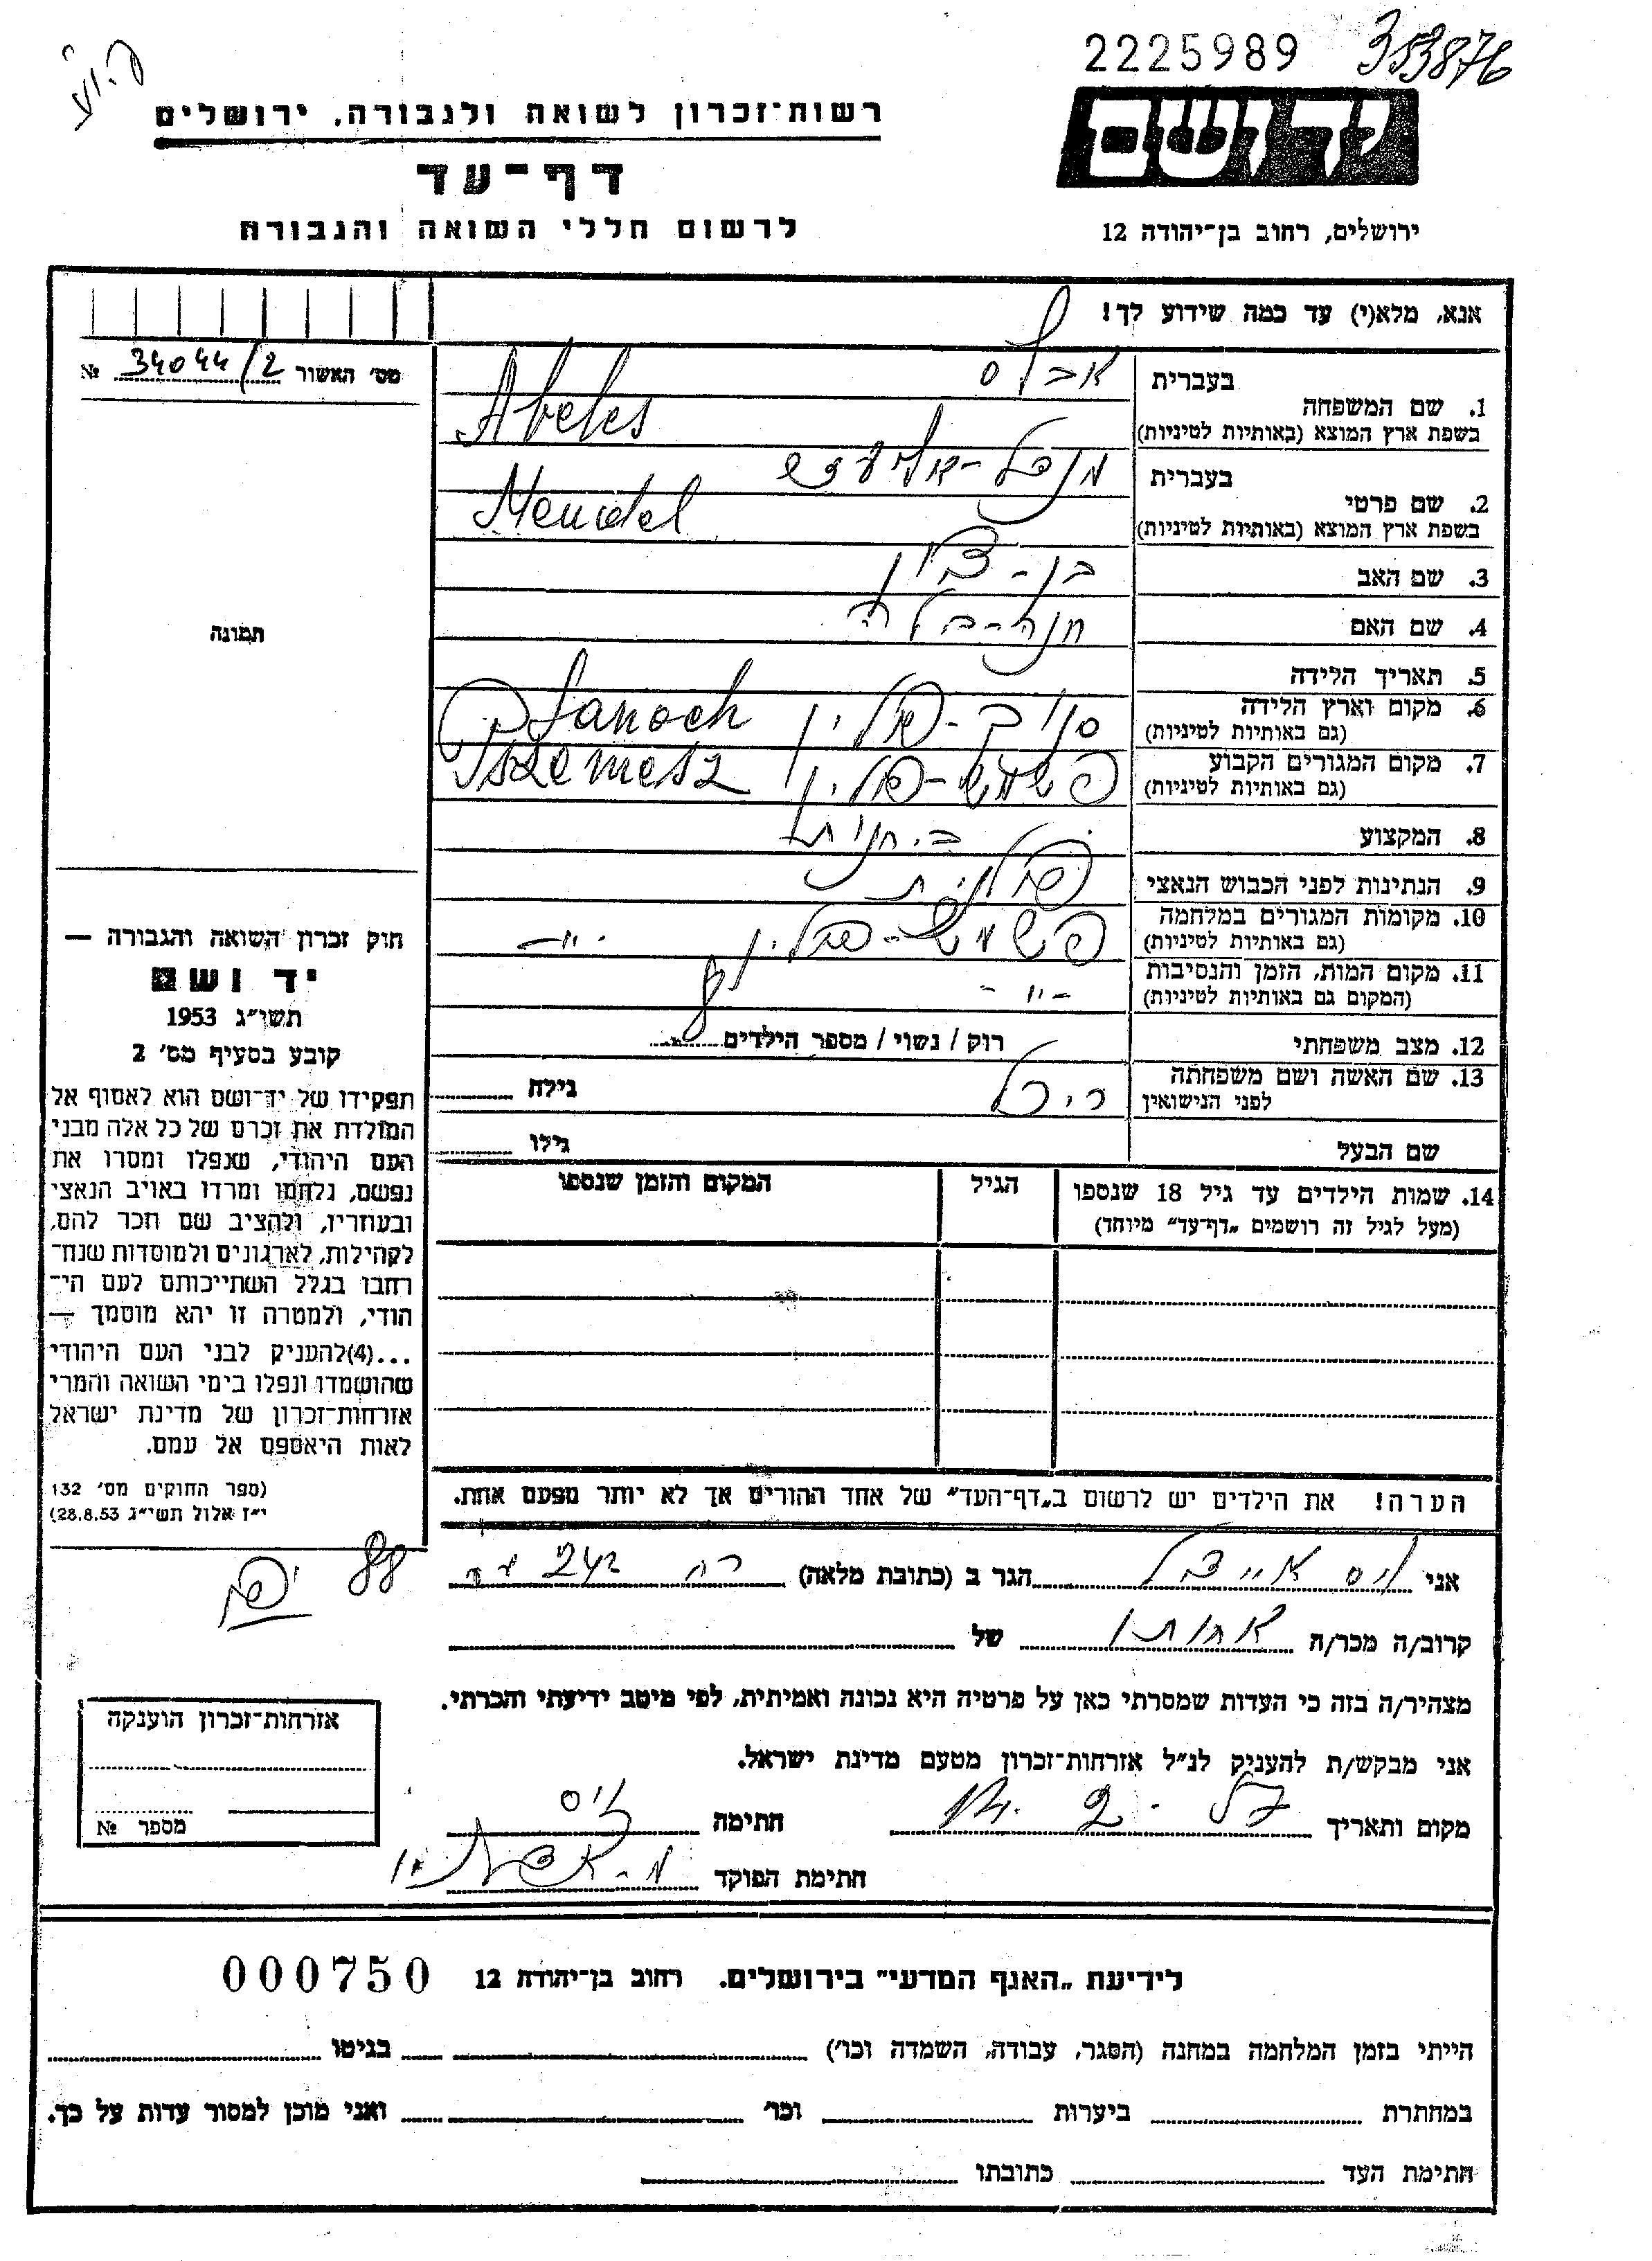 2225989 353876
רשות־זכרון לשואה ולגבורה, ירושלים
יד ושם
דף־עד
לרשום חללי השואה והגבורה
ירושלים, רחוב בן־יהודה 12
אנא, מלא(י) עד כמה שידוע לך!
מס' האשור 34044/2 №
בעברית אבלס
1. שם המשפחה
בשפת ארץ המוצא (באותיות לטיניות) Abeles
בעברית מנדל-אליעזר
2. שם פרטי
בשפת ארץ המוצא (באותיות לטיניות) Mendel
3. שם האב בן-ציון
4. שם האם חנה-בילה
5. תאריך הלידה
6. מקום וארץ הלידה סנוק-פולין Sanoch
(גם באותיות לטיניות)
7. מקום המגורים הקבוע פשמש-פולין Pszemesz
(גם באותיות לטיניות)
8. המקצוע
9. הנתינות לפני הכבוש הנאצי פולנית
10. מקומות המגורים במלחמה פשמש-פולין -"-
(גם באותיות לטיניות)
11. מקום המות, הזמן והנסיבות -"-
(המקום גם באותיות לטיניות)
12. מצב משפחתי רוק / נשוי / מספר הילדים
13. שם האשה ושם משפחתה
לפני הנישואין ריכל גילה
שם הבעל גילו
14. שמות הילדים עד גיל 18 שנספו הגיל המקום והזמן שנספו
(מעל לגיל זה רושמים „דף־עד” מיוחד)
תמונה
חוק זכרון השואה והגבורה —
יד ושם
תשי״ג 1953
קובע בסעיף מס' 2
תפקידו של יד־ושם הוא לאסוף אל
המולדת את זכרם של כל אלה מבני
העם היהודי, שנפלו ומסרו את
נפשם, נלחמו ומרדו באויב הנאצי
ובעוזריו, ולהציב שם וזכר להם,
לקהילות, לארגונים ולמוסדות שנח־
רחבו בגלל השתייכותם לעם הי־
הודי, ולמטרה זו יהא מוסמך —
...(4)להעניק לבני העם היהודי
שהושמדו ונפלו בימי השואה והמרי
אזרחות־זכרון של מדינת ישראל
לאות היאספם אל עמם.
(ספר החוקים מס' 132
י״ז אלול תשי״ג 28.8.53)
הערה! את הילדים יש לרשום ב„דף־העד” של אחד ההורים אך לא יותר מפעם אחת.
88
אני הגר ב (כתובת מלאה)
קרוב/ה מכר/ה אחותו של
מצהיר/ה בזה כי העדות שמסרתי כאן על פרטיה היא נכונה ואמיתית, לפי מיטב ידיעתי והכרתי.
אני מבקש/ת להעניק לנ״ל אזרחות־זכרון מטעם מדינת ישראל.
מקום ותאריך חתימה
חתימת הפוקד
אזרחות־זכרון הוענקה
מספר №
לידיעת „האגף המדעי” בירושלים. רחוב בן־יהודה 12 000750
הייתי בזמן המלחמה במחנה (הסגר, עבודה, השמדה וכו') בגיטו
במחתרת ביערות וכו' ואני מוכן למסור עדות על כך.
חתימת העד כתובתו